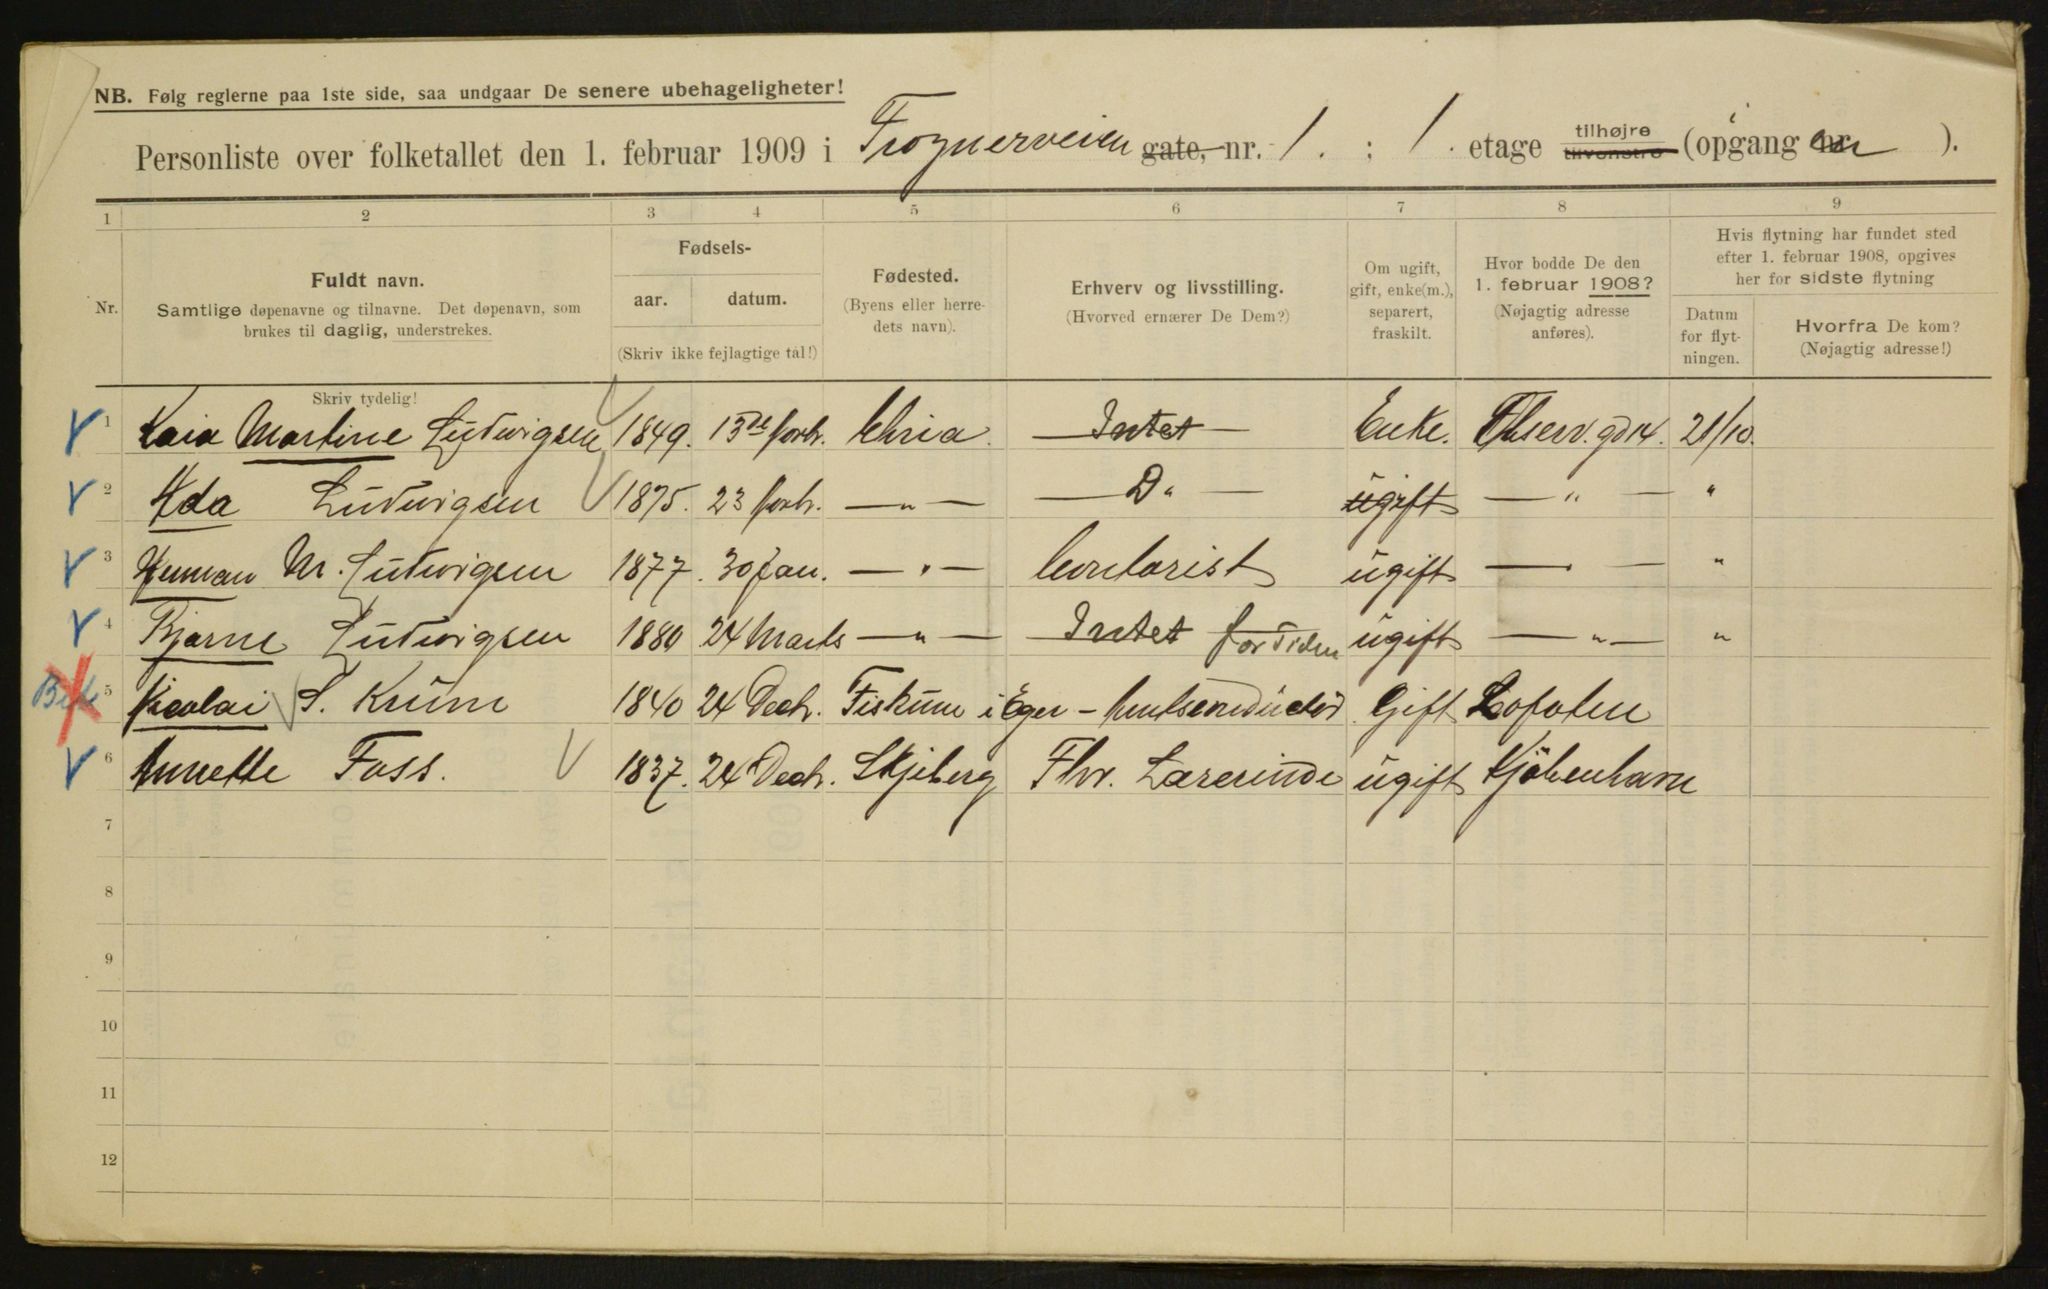 NB. Følg reglerne paa 1ste side, saa undgaar De senere ubehageligheter!
Personliste over folketallet den 1. februar 1909 i Frognerveien gate, nr. 1. : 1. etage tilhøjre tilvenstre (opgang nr ).
1 2 3 4 5 6 7 8 9
Nr.
Fuldt navn.
Samtlige døpenavne og tilnavne. Det døpenavn, som
brukes til daglig, understrekes.
Skriv tydelig!
Fødsels-
aar. datum.
(Skriv ikke fejlagtige tal!)
Fødested.
(Byens eller herre-
dets navn).
Erhverv og livsstilling.
(Hvorved ernærer De Dem?)
Om ugift,
gift, enke(m.),
separert,
fraskilt.
Hvor bodde De den
1. februar 1908?
(Nøjagtig adresse
anføres).
Hvis flytning har fundet sted
efter 1. februar 1908, opgives
her for sidste flytning
Datum
for flyt-
ningen.
Hvorfra De kom?
(Nøjagtig adresse!)
1 Kaia Martine Ludwigsen 1849. 13de febr. Chria. Intet Enke. Observ. gd 14. 21/10.
2 Ida Ludwigsen 1875. 23 febr. — " — — D" — ugift — " — "
3 Herman M. Ludwigsen 1877. 30 Jan. — " — Contorist ugift — " — "
4 Bjarne Ludwigsen 1880 24 Marts — " — Intet for Tiden ugift — " — "
5 Nicolai S. Krum 1840 24 Decbr. Fiskum i Eger - Gift Lofoten
6 Annette Foss. 1837. 24 Decbr. Skjeberg Fhv. Lærerinde ugift Kjöbenhavn
7
8
9
10
11
12